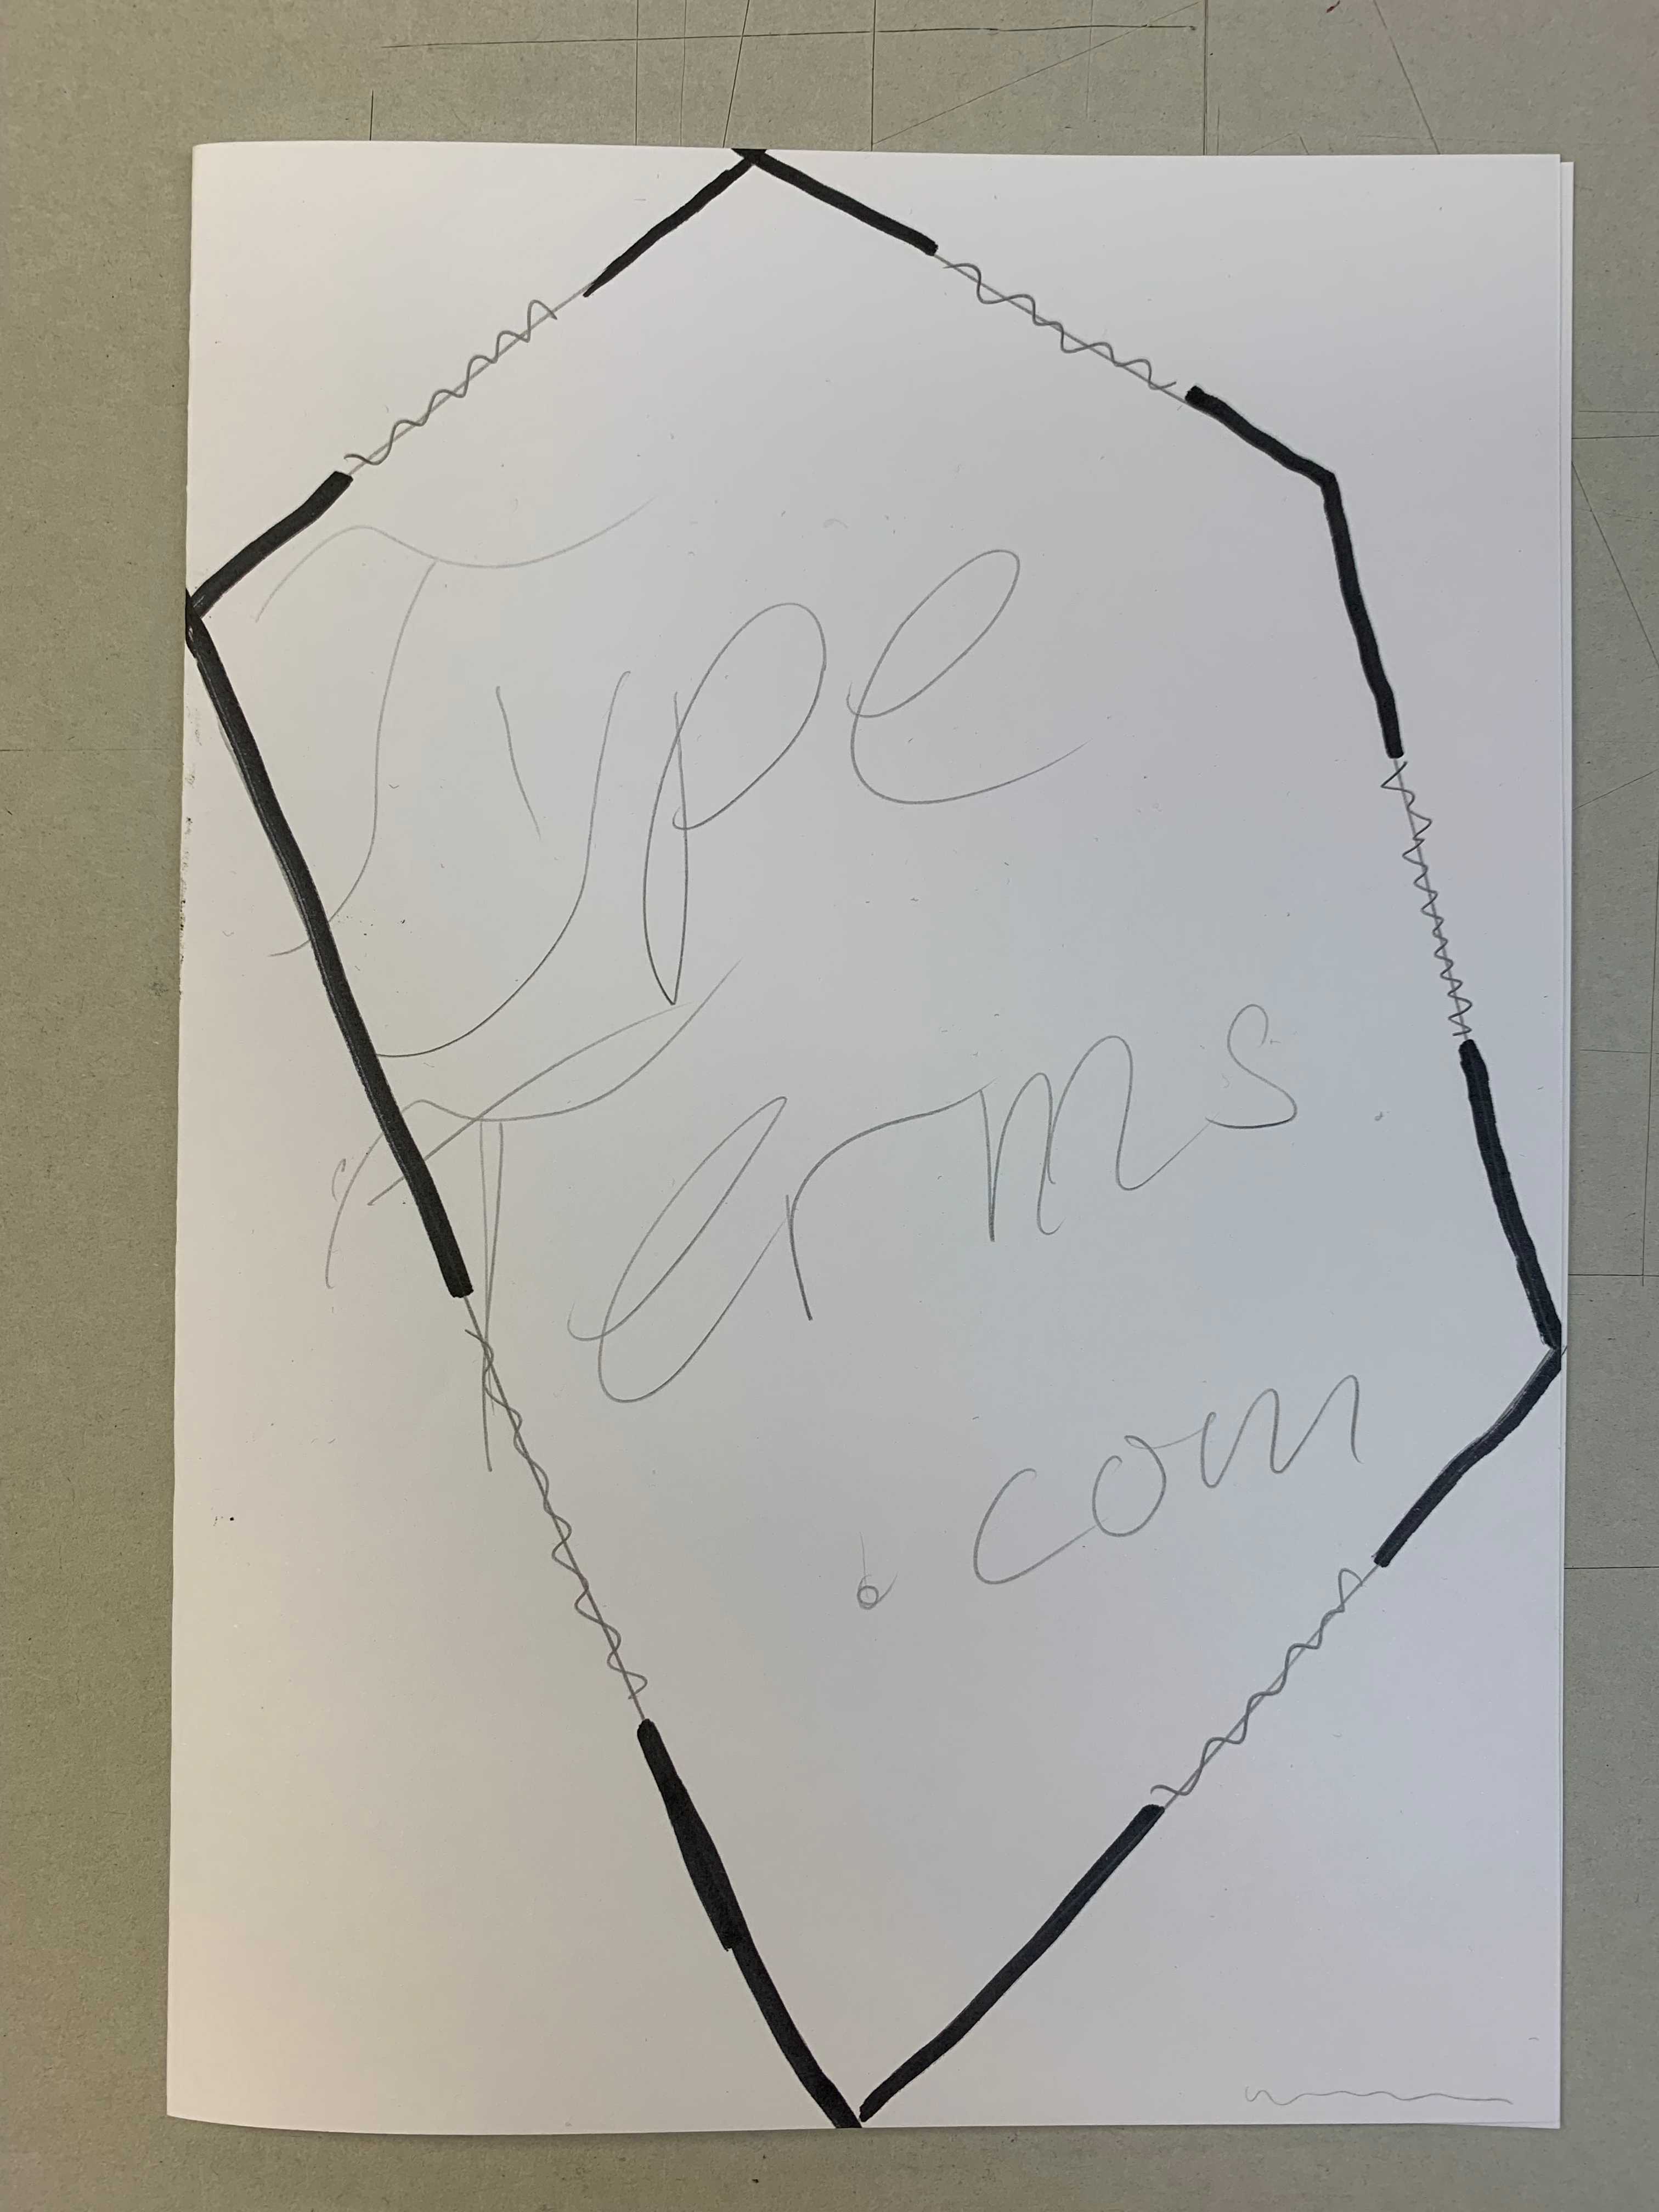 Type
Terms
.com